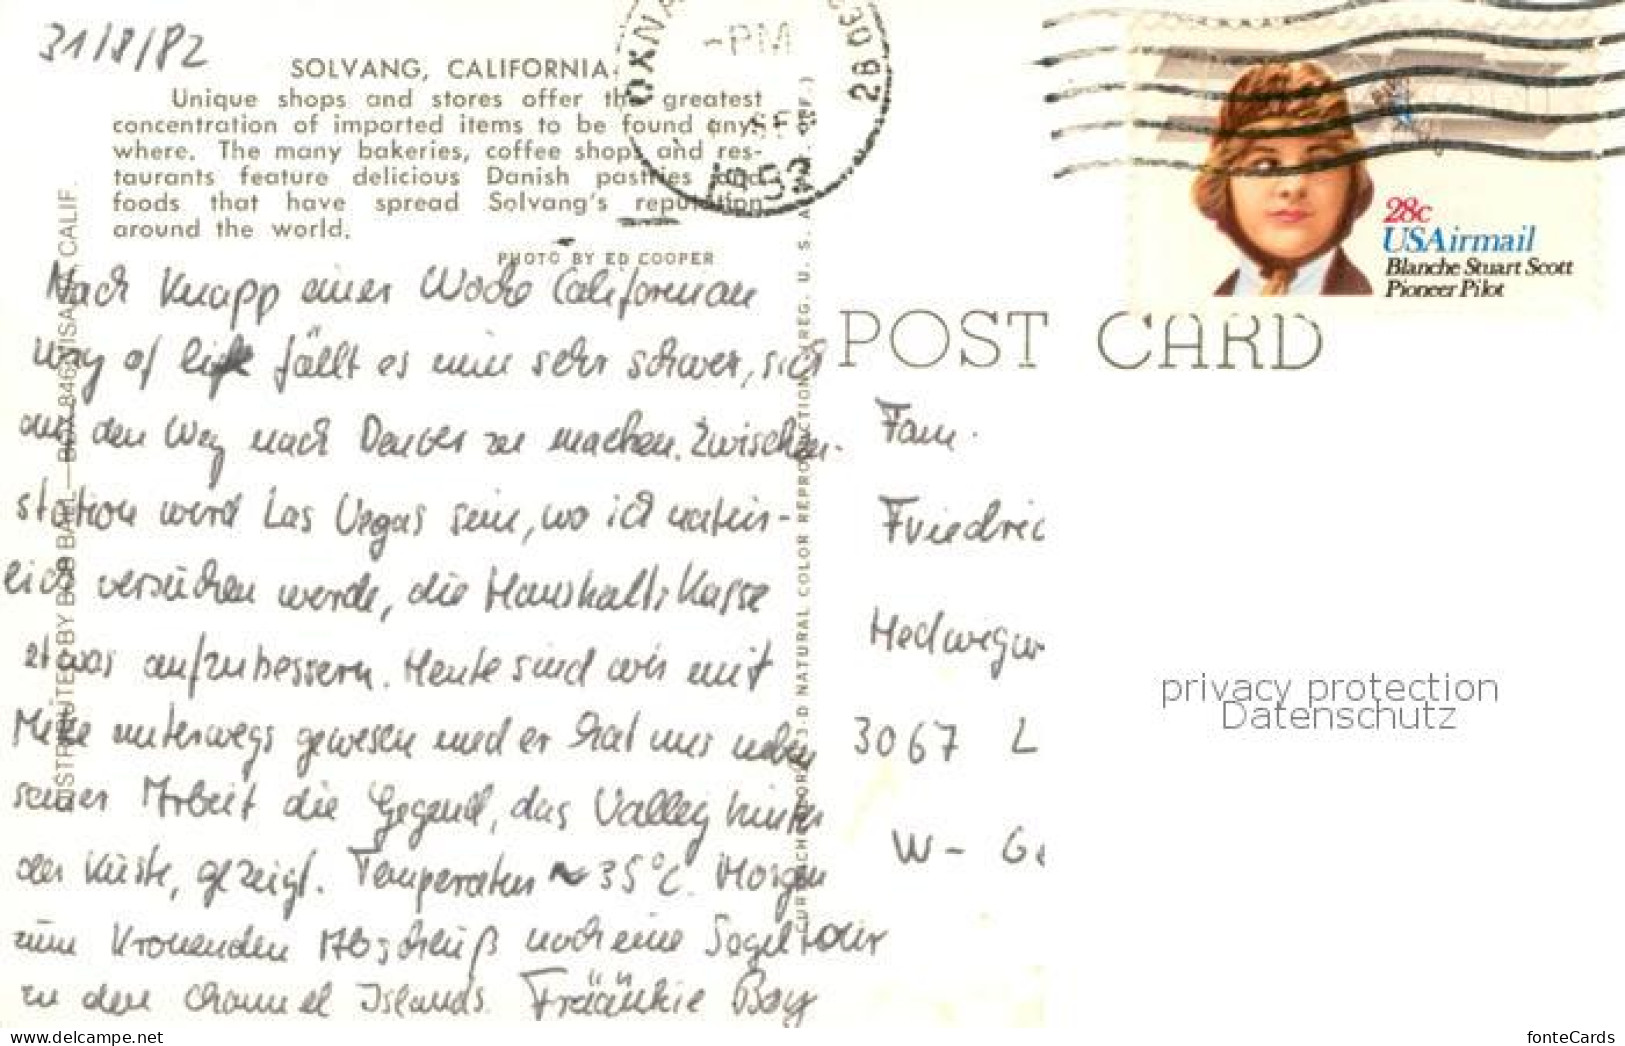 31/8/82
SOLVANG, CALIFORNIA
Unique shops and stores offer the greatest
concentration of imported items to be found any-
where. The many bakeries, coffee shops and res-
taurants feature delicious Danish pastries and
foods that have spread Solvang's reputation
around the world.
PHOTO BY ED COOPER
Nach knapp einer Woche Californian
way of life fällt es mir sehr schwer, sich
auf den Weg nach Denver zu machen. Zwischen-
station wird Las Vegas sein, wo ich natür-
lich versuchen werde, die Haushaltskasse
etwas aufzubessern. Heute sind wir mit
Mike unterwegs gewesen und er hat uns neben
seiner Arbeit die Gegend, das Valley hinter
der Küste, gezeigt. Temperatur ~ 35°C. Morgen
zum krönenden Abschluß noch eine Segeltour
zu den Channel Islands. Frääänkie Boy
DISTRIBUTED BY BOB BALL — BOX 846, VISALIA, CALIF.
CURTEICHCOLOR 3-D NATURAL COLOR REPRODUCTION (REG. U. S. A. PAT. OFF.)
OXNARD
930
PM
28
28c
USAirmail
Blanche Stuart Scott
Pioneer Pilot
POST CARD
Fam.
Friedric
Hedwigw
3067 L
W- Ge
privacy protection
Datenschutz
www.delcampe.net
fonteCards